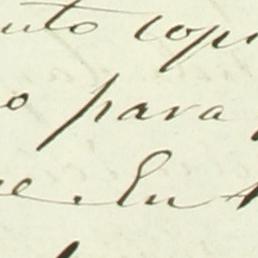 uto copi
o para
e. En